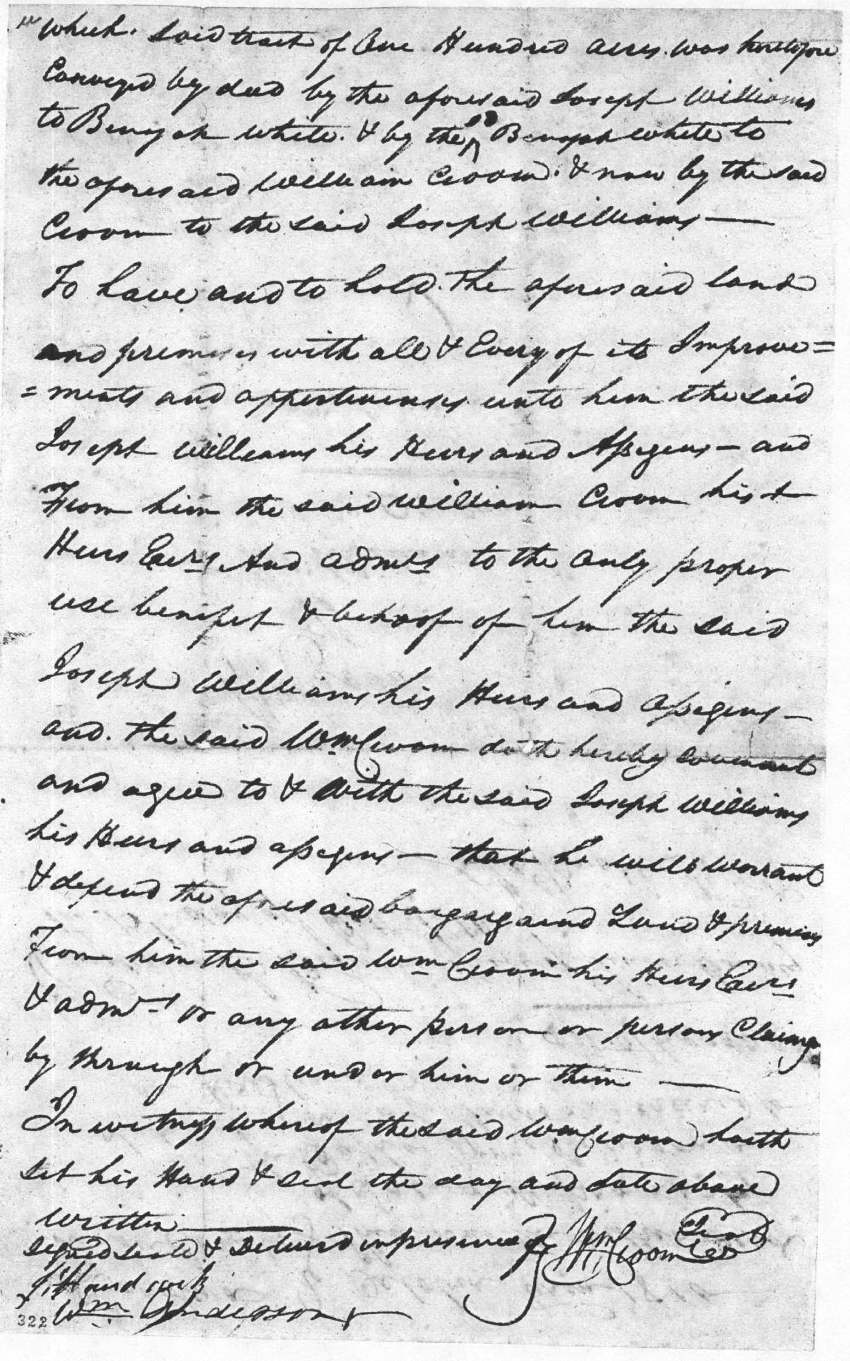 which. said tract of One Hundred acres. was heretofore
Conveyd by deed by the aforesaid Joseph Williams
to Benyah white. & by the sd Benyah white to
the aforesaid William Croom. & now by the said
Croom to the said Joseph Williams —
To have and to hold. the aforesaid land
and premises with all & Every of its Improve=
=ments and appertinenses unto him the said
Joseph Williams his Heirs and Assigens — and
From him the said William Croom his &
Heirs Exers And admrs to the only proper
use benifet & behoof of him the said
Joseph Williams his Heirs and assigens —
and. the said Wm Croom doth hereby covenant
and agree to & With the said Joseph Williams
his Heirs and assigens — that he will warrant
& defend the aforesaid bargargaind Land & premises
From him the said Wm Croom his Heirs Exers
& admrs or any other person or persons Claimg
by through or under him or them —
In witness whereof the said Wm Croom hath
set his Hand & seal the day and date above
written —
Signed seald & Deliverd in presence of Wm Croom Seal
Hardwick
Wm Anderson
322